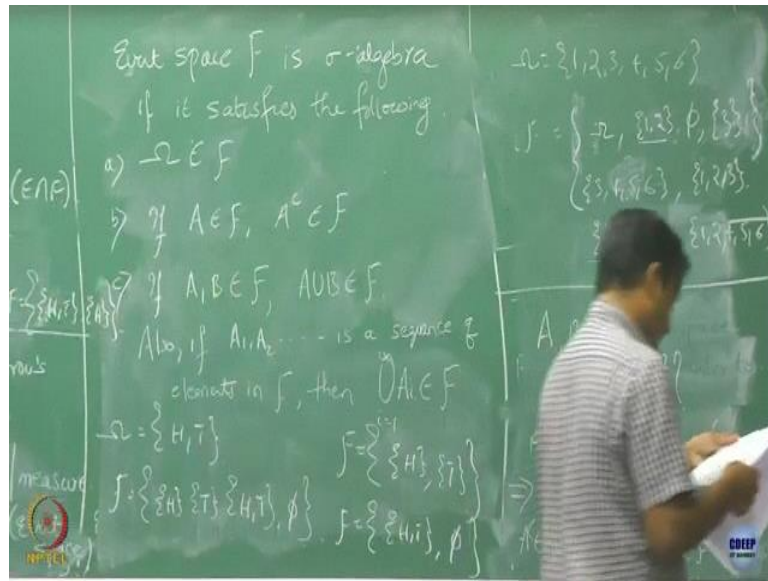 (E∩F)
F={{H,T},{H}}
row's
measure
Event space F is σ-algebra
if it satisfies the following
a) Ω ∈ F
b) If A ∈ F, A^c ∈ F
c) If A, B ∈ F, A∪B ∈ F.
Also, if A₁, A₂ ..... is a sequence of
elements in F, then ∪Aᵢ ∈ F
i=1
Ω = {H, T}
F = {{H}, {T}}
F = {{H} {T}, {H, T}, ϕ}
F = {{H, T}, ϕ}
Ω = {1, 2, 3, 4, 5, 6}
F = { Ω, {1, 2}, ϕ, {3},
{3, 4, 5, 6}, {1, 2, 3}
{1, 2, 4, 5, 6}
A
⇒
NPTEL
CDEEP
IIT BOMBAY